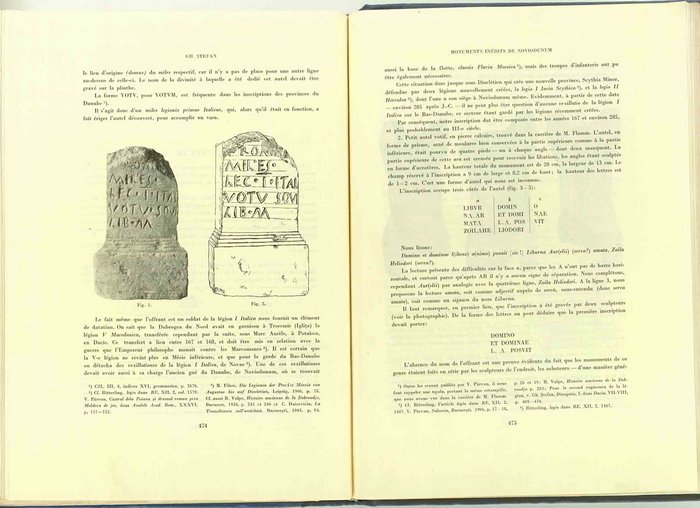 GH. ȘTEFAN
le lieu d'origine (domus) du miles respectif, car il n'y a pas de place pour une autre ligne
au-dessus de celle-ci. Le nom de la divinité à laquelle a été dédié cet autel devait être
gravé sur la plinthe.
La forme VOTV, pour VOTVM, est fréquente dans les inscriptions des provinces du
Danube ¹).
Il s'agit donc d'un miles legionis primae Italicae, qui, alors qu'il était en fonction, a
fait ériger l'autel découvert, pour accomplir un vœu.
MILES
LEC·I·ITAL
VOTV·SOLVI
LIB·M
ROM
MILES·
LEC·I·ITAL
VOTV SOLVI
LIB·M
Fig. 1.
Fig. 2.
Le fait même que l'offrant est un soldat de la légion I Italica nous fournit un élément
de datation. On sait que la Dobrogea du Nord avait en garnison à Troesmis (Iglița) la
légion V Macedonica, transférée cependant par la suite, sous Marc Aurèle, à Potaissa,
en Dacie. Ce transfert a lieu entre 167 et 168, et doit être mis en relation avec la
guerre que l'Empereur philosophe menait contre les Marcomans ²). Il est certain que
la V-e légion ne revint plus en Mésie inférieure, et que pour la garde du Bas-Danube
on détacha des vexillations de la légion I Italica, de Novae ³). Une de ces vexillations
devait avoir aussi à sa charge l'ancien gué du Danube, de Noviodunum, où se trouvait
¹) CIL, III, 4, indices XVI, grammatica, p. 2676.
²) Cf. Ritterling, legio dans RE, XII, 2, col. 1579.
V. Pârvan, Castrul dela Poiana și drumul roman prin
Moldova de jos, dans Analele Acad. Rom., XXXVI,
p. 113—123,
³) B. Filow, Die Legionen der Provinz Moesia von
Augustus bis auf Diocletian, Leipzig, 1906, p. 76.
Cf. aussi R. Vulpe, Histoire ancienne de la Dobroudja,
Bucarest, 1938, p. 245 et 246 et C. Daicoviciu, La
Transilvania nell'antichità, București, 1943, p. 84.
474
MONUMENTS INÉDITS DE NOVIODUNUM
aussi la base de la flotte, classis Flavia Moesica ¹), mais des troupes d'infanterie ont pu
être également nécessaires.
Cette situation dure jusque sous Dioclétien qui crée une nouvelle province, Scythia Minor,
défendue par deux légions nouvellement créées, la legio I Iovia Scythica ²), et la legio II
Herculea ³), dont l'une a son siège à Noviodunum même. Evidemment, à partir de cette date
— environ 285 après J.-C. — il ne peut plus être question d'aucune vexillatio de la légion I
Italica sur le Bas-Danube, ce secteur étant gardé par les légions récemment créées.
Par conséquent, notre inscription dut être composée entre les années 167 et environ 285,
et plus probablement au III-e siècle.
2. Petit autel votif, en pierre calcaire, trouvé dans la carrière de M. Flamm. L'autel, en
forme de prisme, orné de moulures bien conservées à la partie supérieure comme à la partie
inférieure, était pourvu de quatre pieds — un à chaque angle — dont deux manquent. La
partie supérieure de cette ara est creusée pour recevoir les libations, les angles étant sculptés
en forme d'acrotères. La hauteur totale du monument est de 28 cm, la largeur de 13 cm. Le
champ réservé à l'inscription a 9 cm de large et 8,2 de haut; la hauteur des lettres est
de 1—2 cm. C'est une forme d'autel qui nous est inconnue.
L'inscription occupe trois côtés de l'autel (fig. 3—5):
a b c
LIBVR DOMIN O
NA.AR ET DOMI NAE
MATA L.A. POS VIT
ZOILAHE LIODORI
Nous lisons:
Domino et dominae l(ibens) a(nimo) posuit [sic!] Liburna Aur(elii) (serva?) amata, Zoila
Heliodori (serva?).
La lecture présente des difficultés sur la face a, parce que les A n'ont pas de barre hori-
zontale, et surtout parce qu'après AR il n'y a aucun signe de séparation. Nous complétons,
cependant Aur(elii) par analogie avec la quatrième ligne, Zoila Heliodori. A la ligne 3, nous
proposons la lecture amata, soit comme adjectif auprès de serva, sous-entendu (donc serva
amata), soit comme un signum du nom Liburna.
Il faut remarquer, en premier lieu, que l'inscription a été gravée par deux sculpteurs
(voir la photographie). De la forme des lettres on peut déduire que la première inscription
devait porter:
DOMINO
ET DOMINAE
L. A. POSVIT
L'absence du nom de l'offrant est une preuve évidente du fait que les monuments de ce
genre étaient faits en série par les sculpteurs de l'endroit, les acheteurs — d'une manière géné-
¹) Outre les œuvres publiés par V. Pârvan, il nous
faut rappeler une tegula, portant la même estampille,
que nous avons vue dans la carrière de M. Flamm.
²) Cf. Ritterling, l'article legio dans RE, XII, 2,
1407. V. Pârvan, Salsovia, Bucarest, 1906, p. 17—18,
p. 26 et 30; R. Vulpe, Histoire ancienne de la Dob-
roudja p. 285; Pour le second expansion de la lé-
gion, v. Gh. Ștefan, Dinogetia I, dans Dacia, VII-VIII,
p. 409—410.
³) Ritterling, RE, XII, 2, 1467.
475